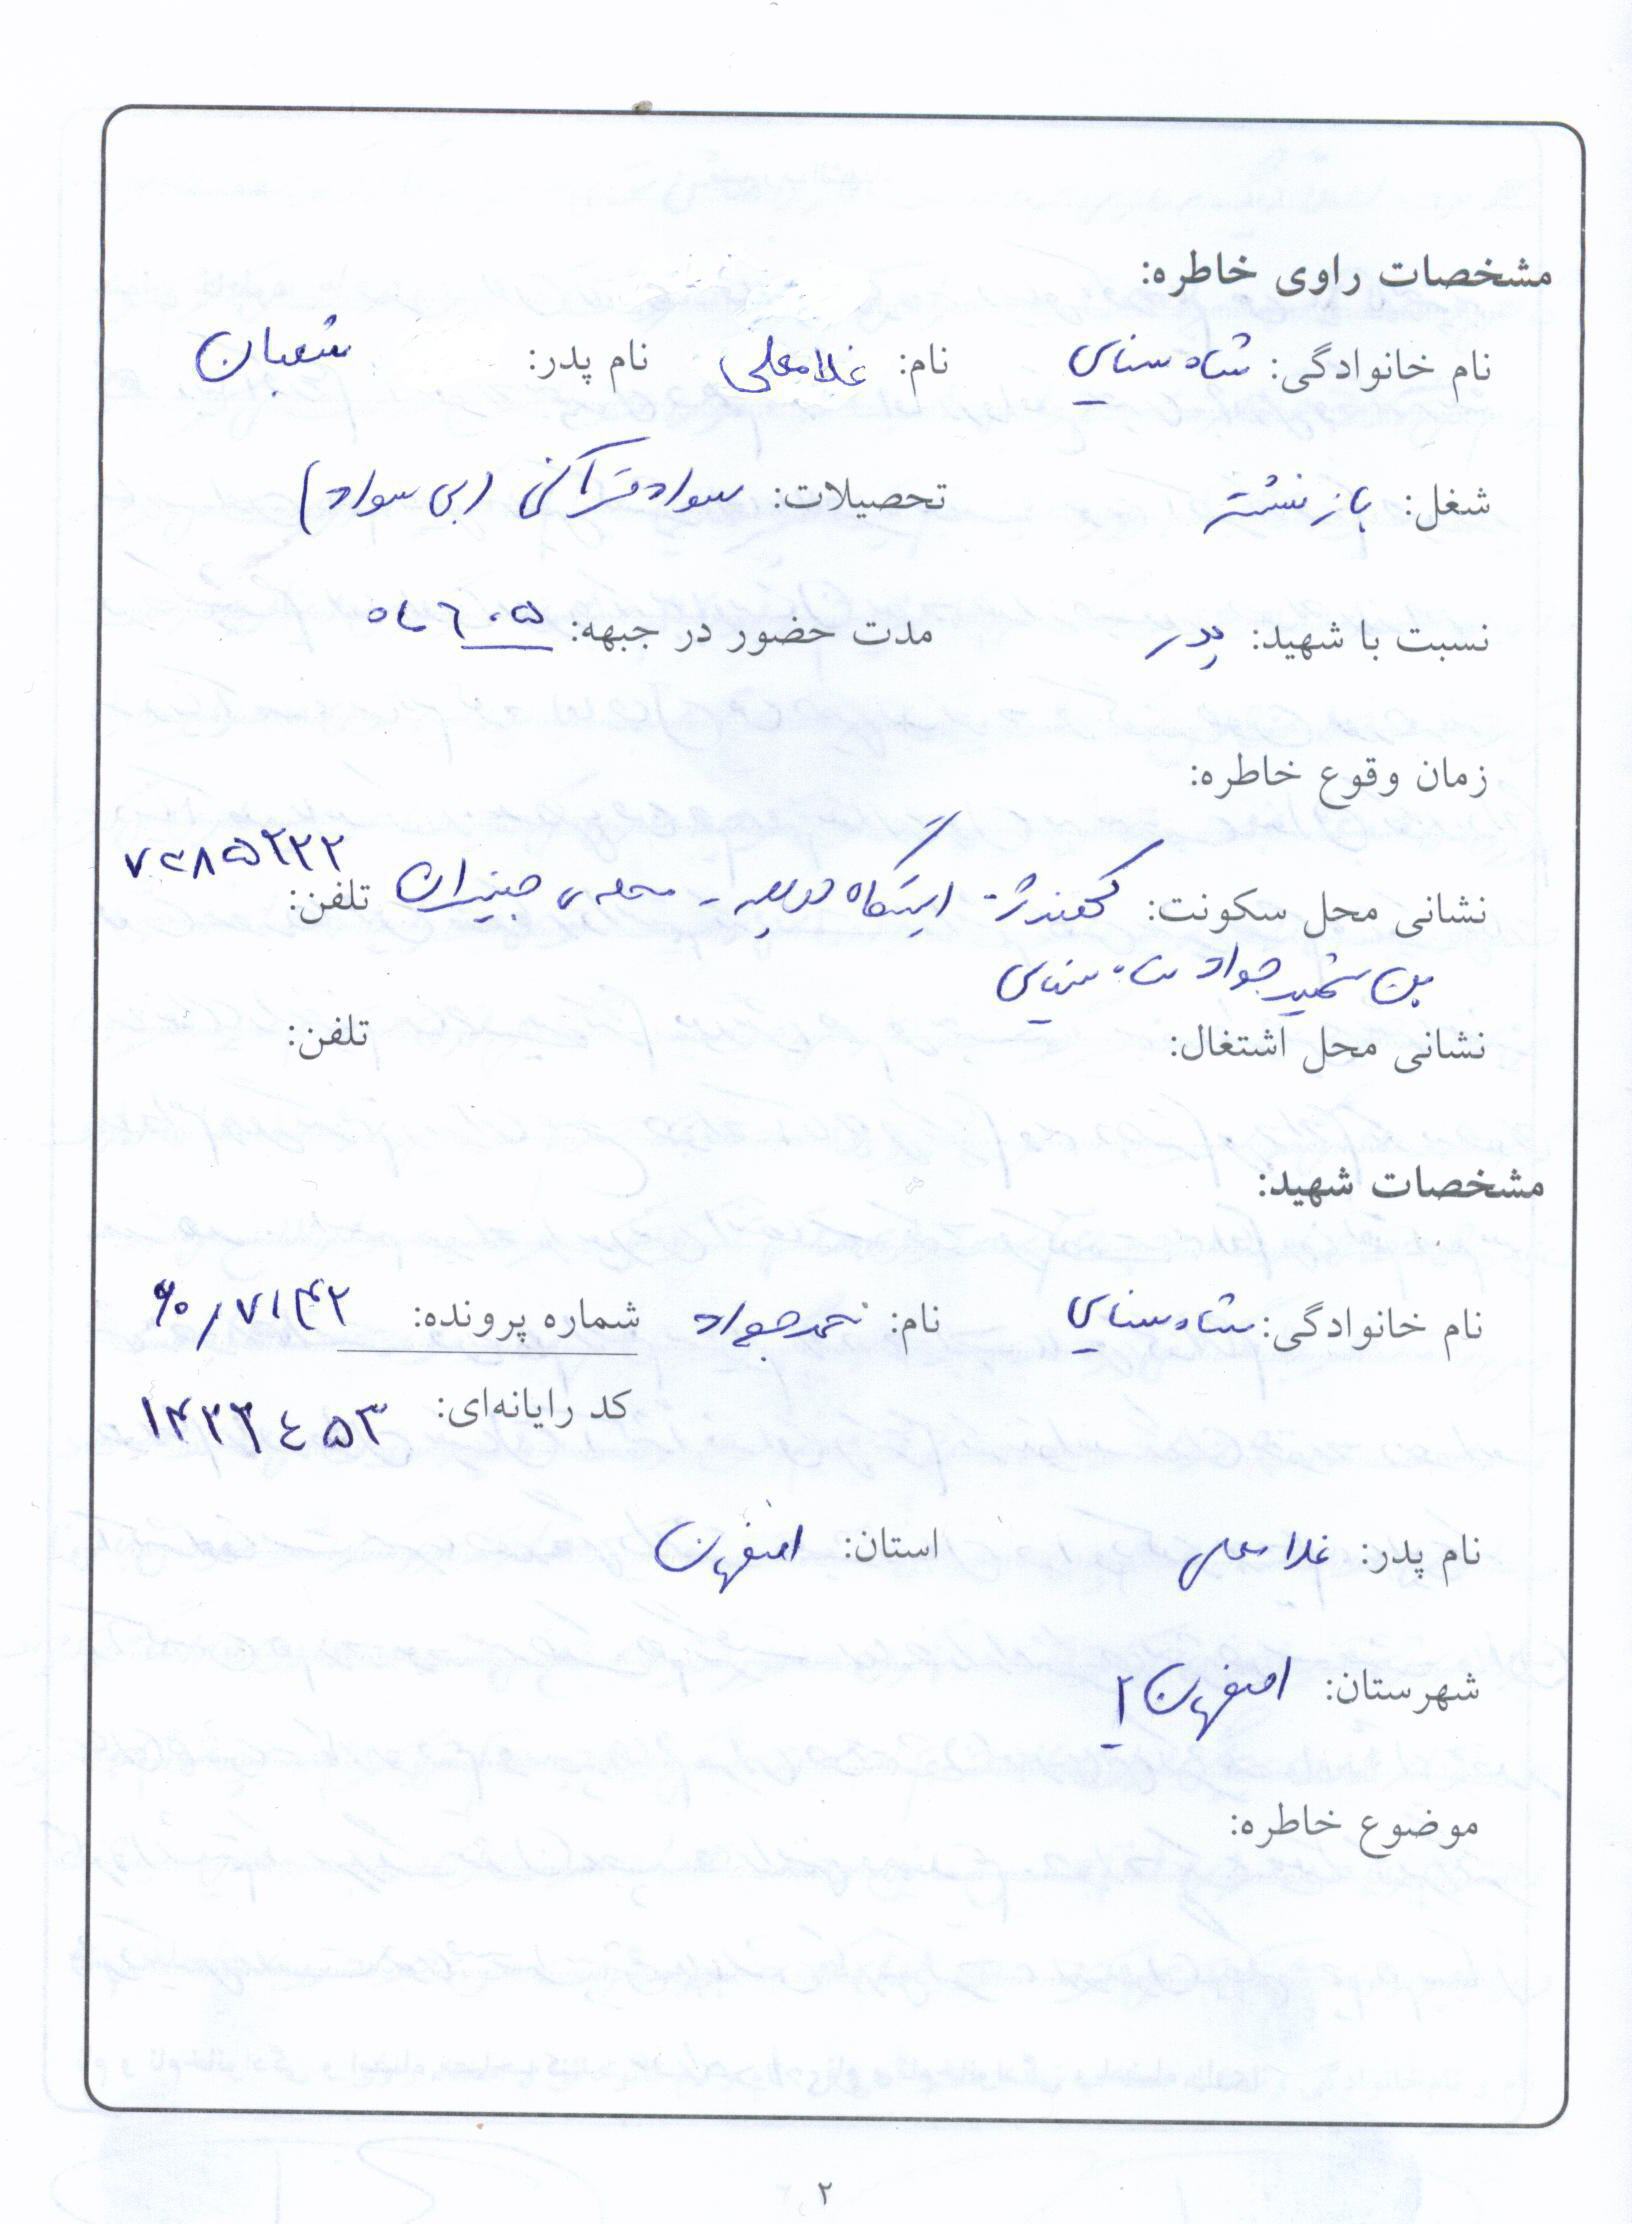 مشخصات راوی خاطره:
نام خانوادگی: شاه سنایی نام: غلامعلی نام پدر: شعبان
شغل: بازنشسته تحصیلات: سواد قرآنی (بی سواد)
نسبت با شهید: پدر مدت حضور در جبهه:
زمان وقوع خاطره:
نشانی محل سکونت: کهندژ ایستگاه - محله ی تلفن:
بن شهید جواد شاه سنایی
نشانی محل اشتغال: تلفن:
مشخصات شهید:
نام خانوادگی: شاه سنایی نام: محمد جواد شماره پرونده:
کد رایانه‌ای:
نام پدر: غلامعلی استان: اصفهان
شهرستان: اصفهان ۲
موضوع خاطره:
۲